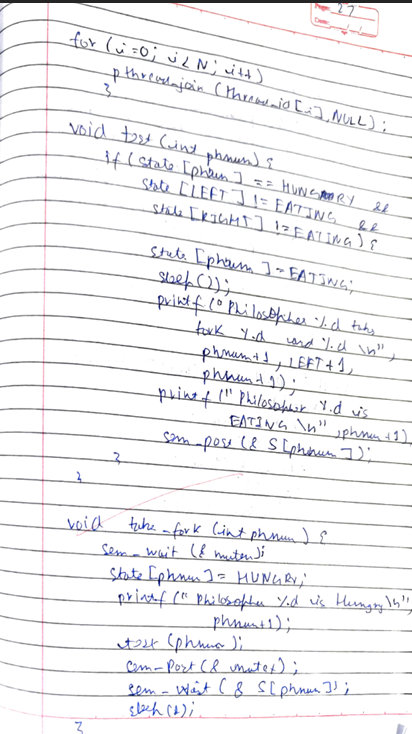 Page 27
Date
for (i=0; i<N; i++)
pthread_join (thread_id[i], NULL);
}
void test (int phnum) {
if (state [phnum] == HUNGRY &&
state [LEFT] != EATING &&
state [RIGHT] != EATING) {
state [phnum] = EATING;
sleep(2);
printf ("Philosopher %d takes
fork %d and %d \n",
phnum+1, LEFT+1,
phnum+1);
printf ("Philosopher %d is
EATING \n", phnum+1)
sem_post (& S[phnum]);
}
}
void take_fork (int phnum) {
sem_wait (& mutex);
state [phnum] = HUNGRY;
printf ("Philosopher %d is Hungry \n"
phnum+1);
test (phnum);
sem_post (& mutex);
sem_wait (& S[phnum]);
sleep (1);
}